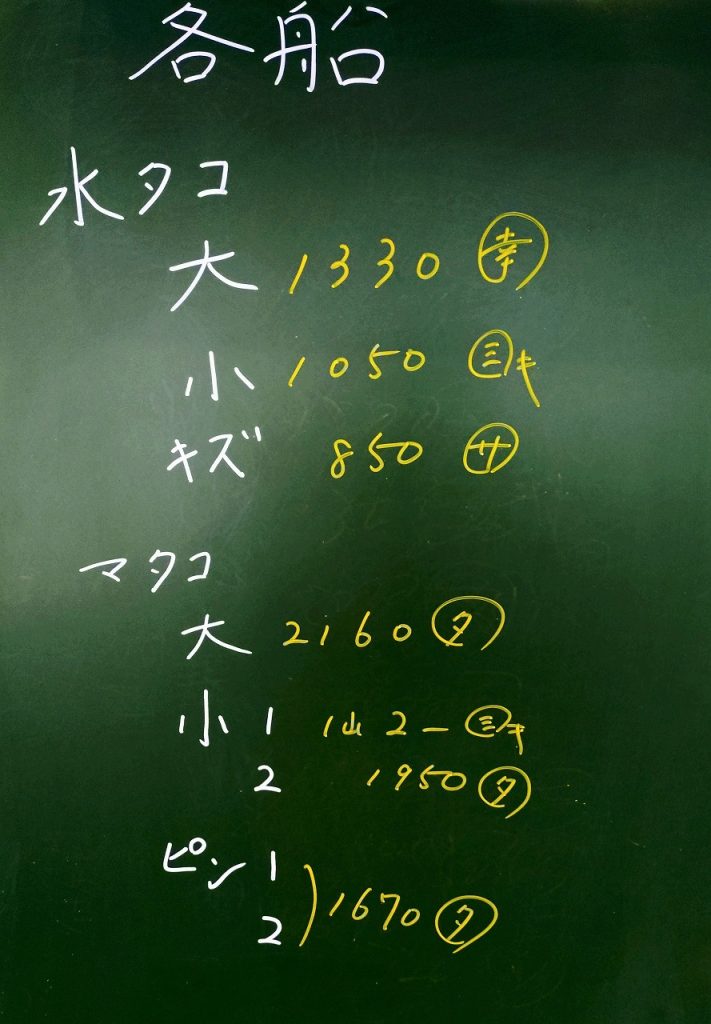 各船
水タコ
大 1330 幸
小 1050 ミキ
キズ 850 サ
マタコ
大 2160 タ
小 1 1山 2- ミキ
2 1950 タ
ピン 1
2 1670 タ